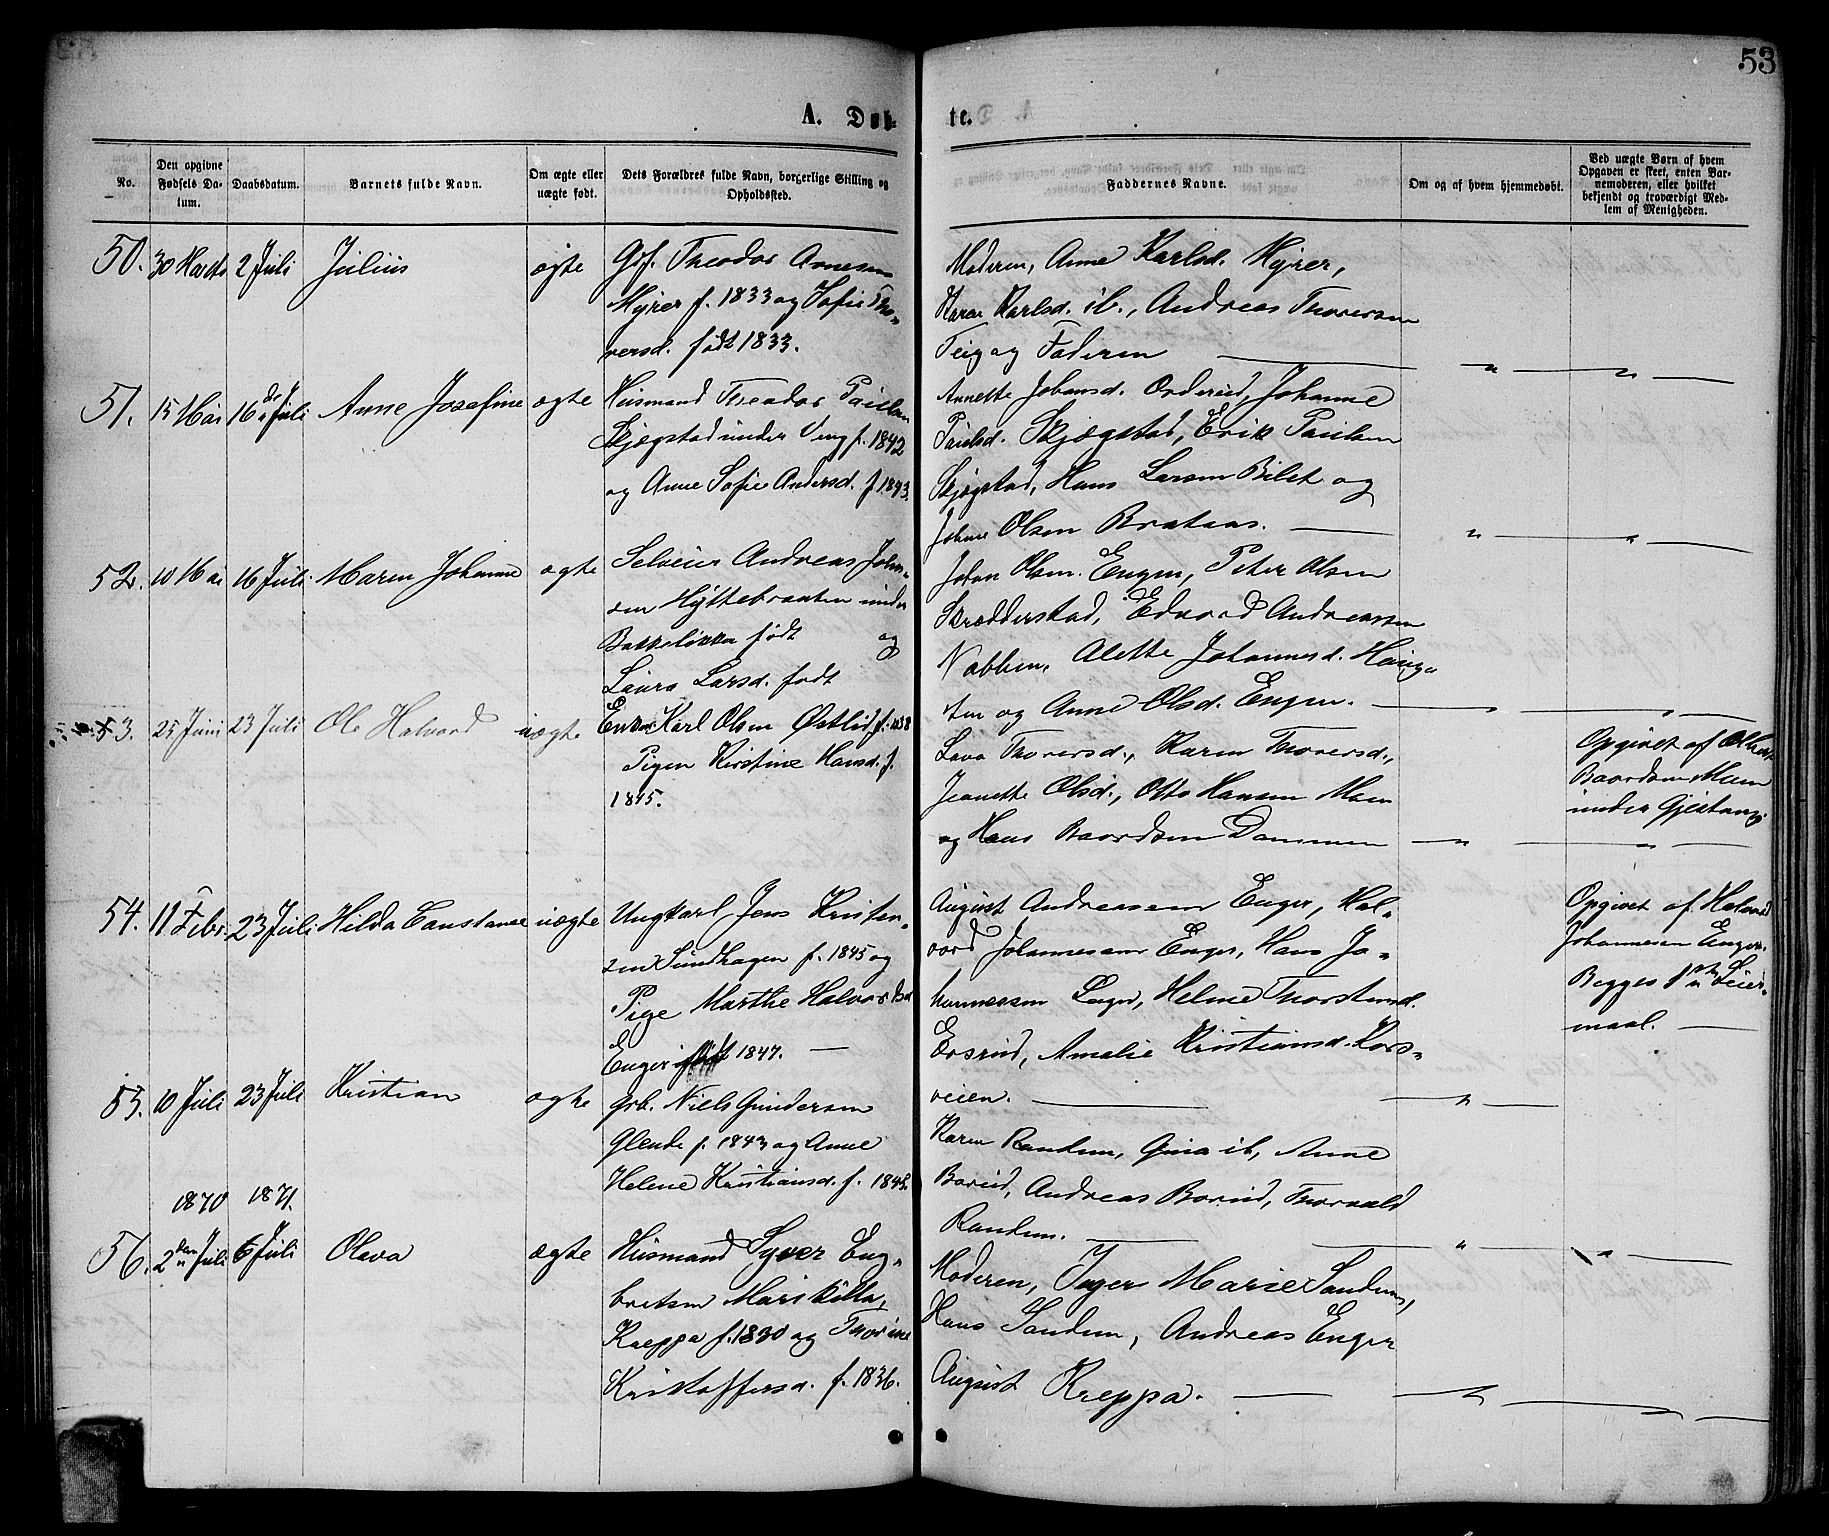 53
A. Døb-
te.
No.
Den opgivne Fødsels Da-tum.
Daabsdatum.
Barnets fulde Navn.
Om ægte eller uægte født.
Dets Forældres fulde Navn, borgerlige Stilling og Opholdssted.
Faddernes Navne.
Om og af hvem hjemmedøbt.
Ved uægte Børn af hvem Opgaven er skeet, enten Bar-nemoderen, eller hvilket bekjendt og troværdigt Med-lem af Menigheden.
50. 30 Marts 2 Juli Julius ægte
Theodor Arnesen
Myrer f. 1833 og Sofie Tho-
versd. født 1833.
Moderen, Anne Karlsd. Myrer,
Karen Karlsd. ib., Andreas Thoversen
Teig og Faderen
51. 15 Mai 16de Juli Anne Josefine ægte
Husmand Theodor Paulsen
Skjøgstad under Veng f. 1842
og Anne Sofie Andersd. f. 1843.
Annette Johansd. Orderud, Johanne
Paulsd. Skjøgstad, Erik Paulsen
Skjøgstad, Hans Larsen Bilet og
Johan Olsen Brataas.
52. 10 Mai 16 Juli Maren Johanne ægte
Selveier Andreas Johan-
sen Hyttebraaten under
Bakkeløkka født og
Laura Larsd. født
Johan Olsen Engen, Peter Olsen
Skrædderstad, Edvard Andreassen
Nabben, Alette Johannesd. Hauga-
ter og Anne Olsd. Engen.
53. 25 Juni 23 Juli Ole Halvard uægte
Enkem Karl Olsen Østlid f. 1838
Pigen Kirstine Hansd. f.
1845.
Lava Thoversd., Karen Thoversd.,
Jeanette Olsd., Otto Hansen Moen
og Hans Baardsen Dammen
Opgivet af
Baardsen Moen
under Gjestang
54. 11 Febr. 23 Juli Hilda Constanse uægte
Ungkarl Jens Kristen-
sen Sundhagen f. 1845 og
Pige Marthe Halvorsd.
Enger født 1847.
August Andreassen Enger, Hal-
vord Johannesen Enger, Hans Jo-
hannessen Enger, Helene Thorstensd.
Ersrud, Amalie Kristiansd. Kors-
veien.
Opgivet af Halvord
Johannesen Enger.
Begges 1ste Leier-
maal.
55. 10 Juli 23 Juli Kristian ægte
Grb. Niels Gundersen
Glende f. 1843 og Anne
Helene Kristiansd. f. 1848.
Karen Randem, Gina ib, Anne
Borud, Andreas Borud, Thorvald
Randem.
1870 1871.
56. 2den Juli 6 Juli Olava ægte
Husmand Syver Eng-
bretsen Mariskilla,
Kreppa f. 1830 og Thorine
Kristoffersd. f. 1836.
Moderen, Inger Marie Sandem,
Hans Sandem, Andreas Enger
August Kreppa.